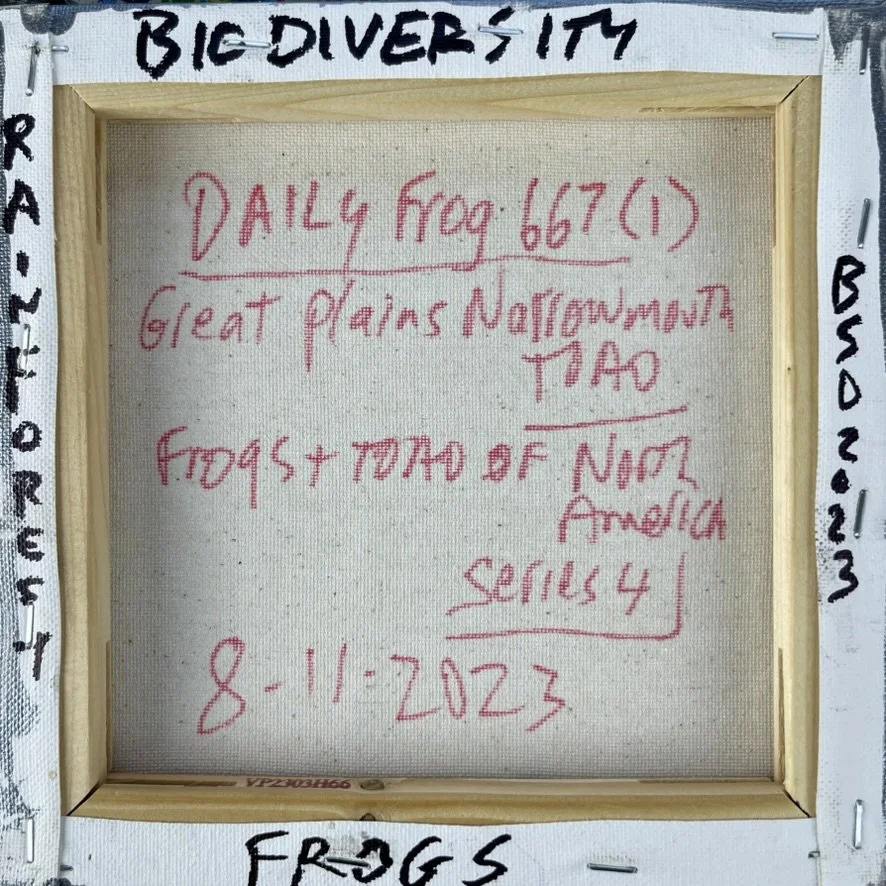 BIODIVERSITY
RAINFOREST
DAILY Frog 667 (1)
Great Plains Narrowmouth
TOAD
Frogs + TOAD OF North
America
Series 4
8-11-2023
VP2303H66
BSD 2023
FROGS